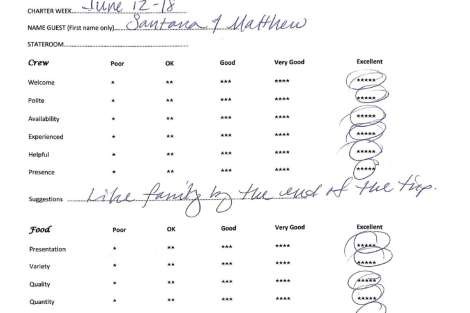 CHARTER WEEK June 12-18
NAME GUEST (First name only) Santana & Matthew
STATEROOM
Crew Poor OK Good Very Good Excellent
Welcome * ** *** **** *****
Polite * ** *** **** *****
Availability * ** *** **** *****
Experienced * ** *** **** *****
Helpful * ** *** **** *****
Presence * ** *** **** *****
Suggestions Like family by the end of the trip.
Food Poor OK Good Very Good Excellent
Presentation * ** *** **** *****
Variety * ** *** **** *****
Quality * ** *** **** *****
Quantity * ** *** **** *****